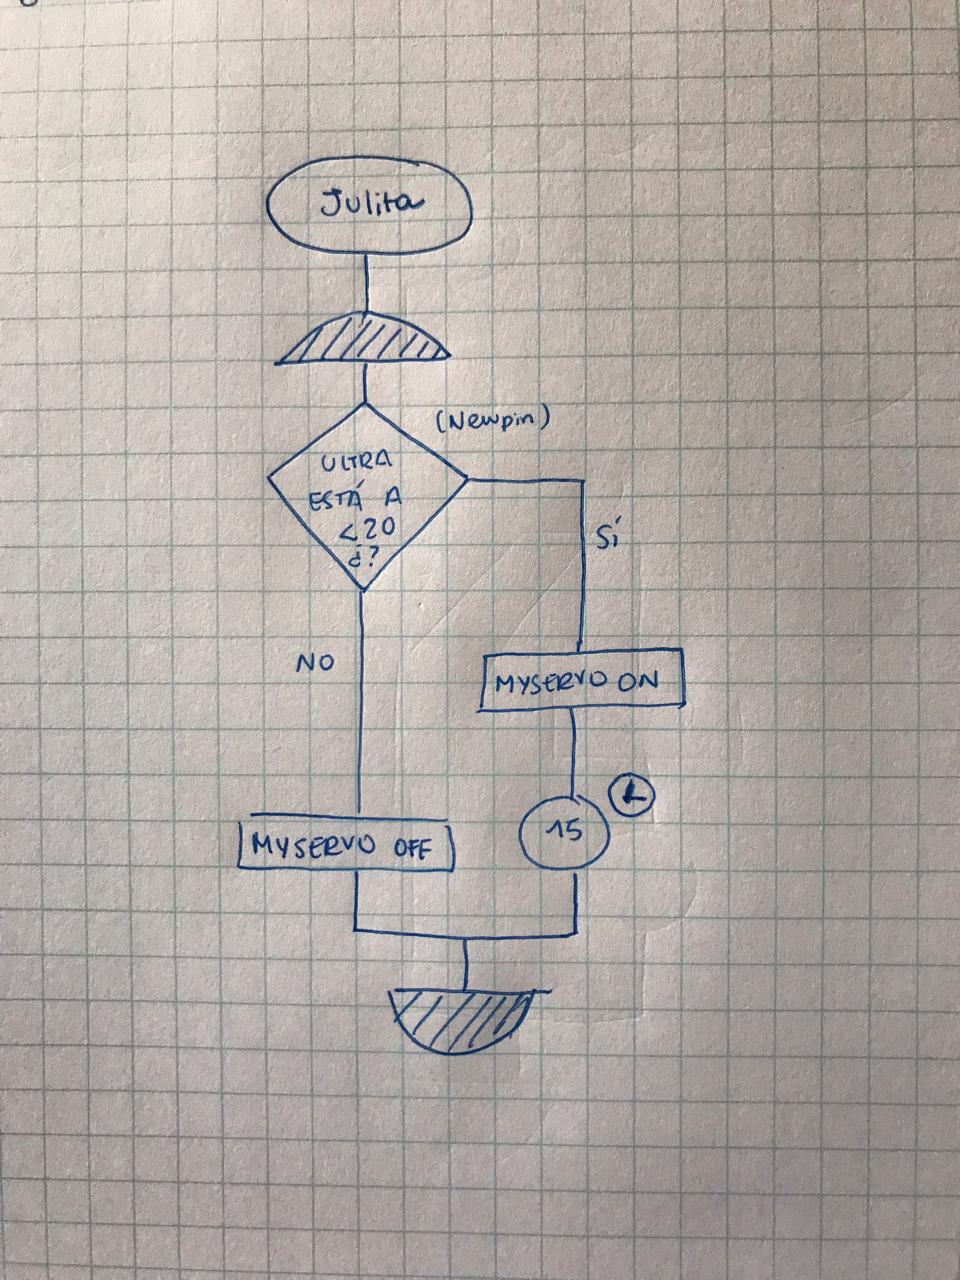 Julita
(Newpin)
ULTRA
ESTÁ A
<20
¿?
SÍ
NO
MYSERVO ON
15
MYSERVO OFF